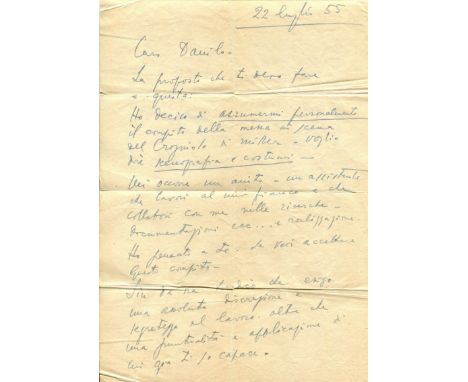 22 luglio 55
Caro Danilo.
La proposta che ti devo fare
è questa:
Ho deciso di assumermi personalmente
il compito della messa in scena
del Crogiuolo di Miller. Voglio
dire scenografia e costumi —
Mi occorre un aiuto - un assistente
che lavori al mio fianco e che
collabori con me nelle ricerche -
Documentazioni ecc... e realizzazione
Ho pensato a te. Se vuoi accettare
questo compito -
Sin da ora ti dico che esigo
una assoluta discrezione e
segretezza sul lavoro oltre che
una puntualità e applicazione di
cui già ti so capace.